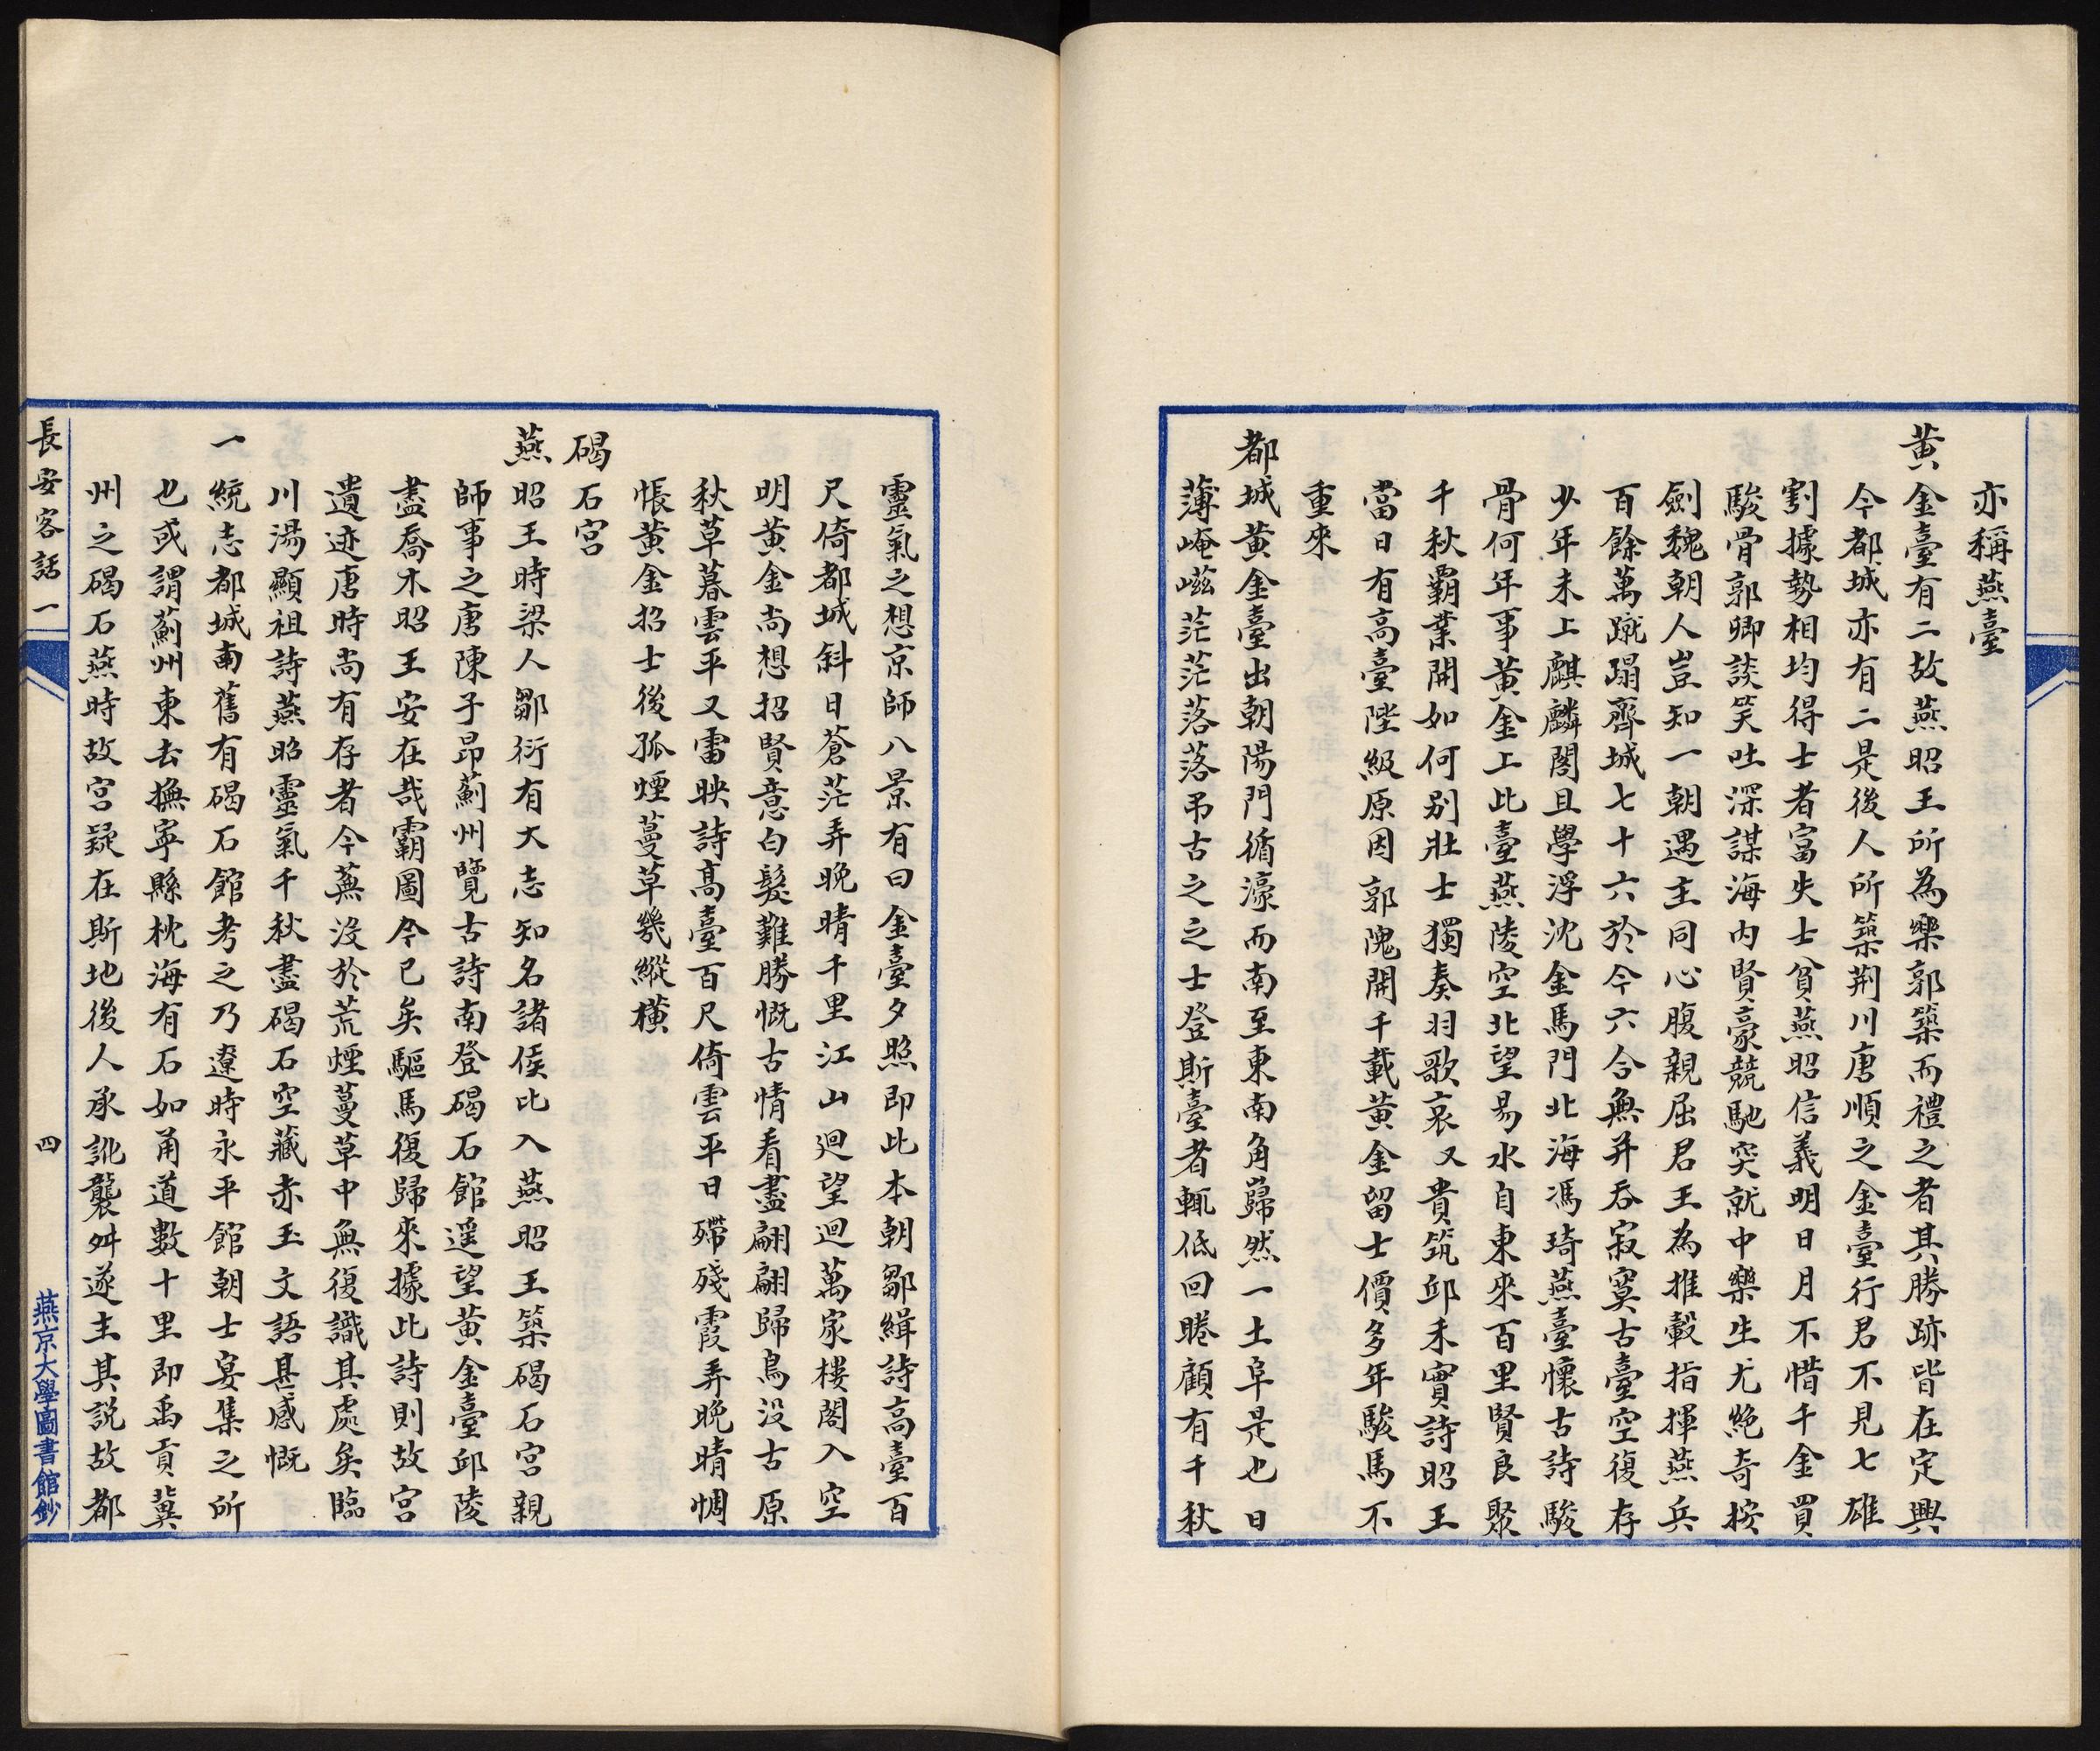 亦稱燕臺
黃金臺有二故燕昭王所為樂郭築而禮之者其勝跡皆在定興
今都城亦有二是後人所築荆川唐順之金臺行君不見七雄
割據勢相均得士者富失士貧燕昭信義明日月不惜千金買
駿骨郭卿談笑吐深謀海内賢豪競馳突就中樂生尤絶奇按
劍魏朝人豈知一朝遇主同心腹親屈君王為推轂指揮燕兵
百餘萬蹴蹋齊城七十六於今六合無并吞寂寞古臺空復存
少年未上麒麟閣且學浮沈金馬門北海馮琦燕臺懷古詩駿
骨何年事黃金上此臺燕陵空北望易水自東來百里賢良聚
千秋霸業開如何别壯士獨奏羽歌哀又貴筑邱禾實詩昭王
當日有高臺陛級原因郭隗開千載黃金留士價多年駿馬不
重來
都城黃金臺出朝陽門循濠而南至東南角巋然一土阜是也日
薄崦嵫茫茫落落弔古之之士登斯臺者輒低回睠顧有千秋
靈氣之想京師八景有曰金臺夕照即此本朝鄒緝詩高臺百
尺倚都城斜日蒼茫弄晚晴千里江山迴望迴萬家樓閣入空
明黃金尚想招賢意白髮難勝慨古情看盡翩翩歸鳥没古原
秋草暮雲平又雷映詩高臺百尺倚雲平日殢殘霞弄晚晴惆
悵黃金招士後孤煙蔓草幾縱橫
碣石宮
燕昭王時梁人鄒衍有大志知名諸侯比入燕昭王築碣石宮親
師事之唐陳子昂薊州覽古詩南登碣石館遥望黃金臺邱陵
盡喬木昭王安在哉霸圖今已矣驅馬復歸來據此詩則故宮
遺迹唐時尚有存者今蕪没於荒煙蔓草中無復識其處矣臨
川湯顯祖詩燕昭靈氣千秋盡碣石空藏赤玉文語甚感慨
一統志都城南舊有碣石館考之乃遼時永平館朝士宴集之所
也或謂薊州東去撫寧縣枕海有石如甬道數十里即禹貢冀
州之碣石燕時故宮疑在斯地後人承訛襲舛遂主其説故都
長安客話一
四
燕京大學圖書館鈔